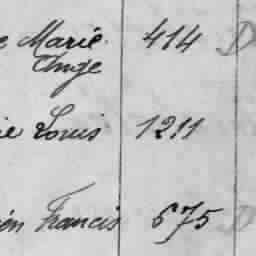 e Marie 414 D
Ange
ie Louis 1211
ién Francis 675 D